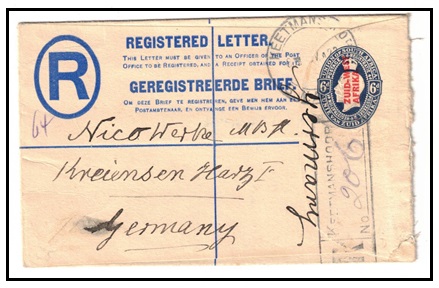 REGISTERED LETTER.
THIS LETTER MUST BE GIVEN TO AN OFFICER OF THE POST
OFFICE TO BE REGISTERED, AND A RECEIPT OBTAINED FOR IT.
R
GEREGISTREERDE BRIEF.
OM DEZE BRIEF TE REGISTREREN, GEVE MEN HEM AAN EEN
POSTAMBTENAAR, EN ONTVANGE EEN BEWIJS ERVOOR.
KEETMANSHOOP
ZUID-WEST
AFRIKA
6d
6d
64
Nico Werke
Kreiensen Harz I
Germany
Germany
KEETMANSHOOP
No 906